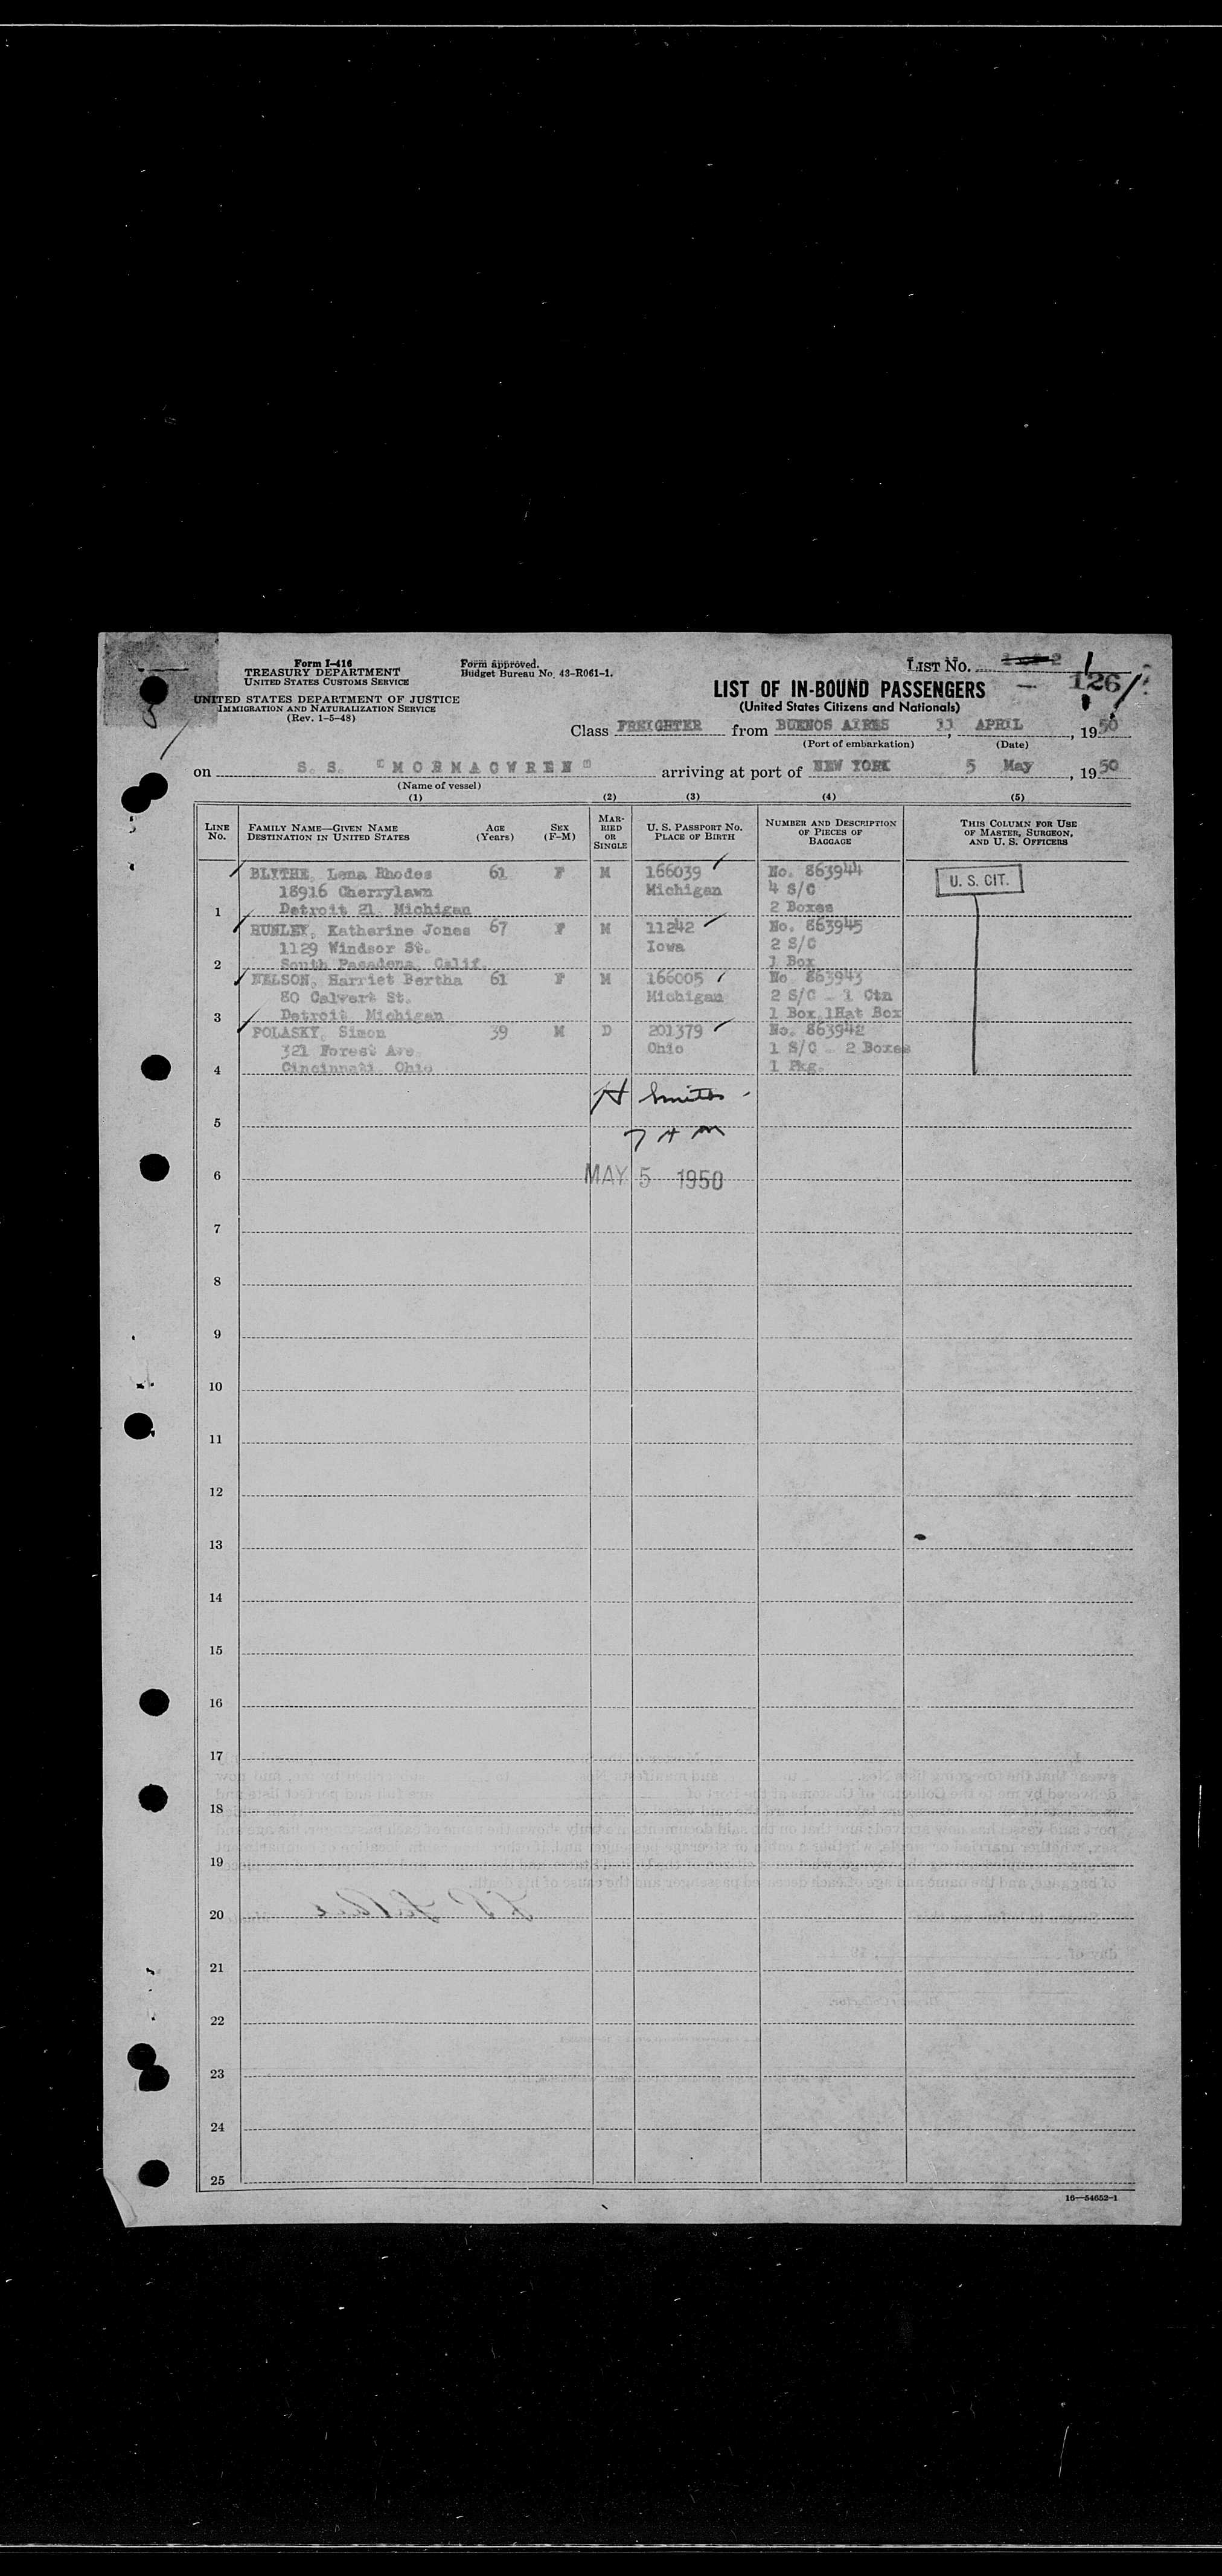 Form I-416
TREASURY DEPARTMENT
UNITED STATES CUSTOMS SERVICE
UNITED STATES DEPARTMENT OF JUSTICE
IMMIGRATION AND NATURALIZATION SERVICE
(Rev. 1-5-48)
Form approved.
Budget Bureau No. 43-R061-1.
LIST NO. 1
126
LIST OF IN-BOUND PASSENGERS
(United States Citizens and Nationals)
Class FREIGHTER from BUENOS AIRES APRIL, 1950
(Port of embarkation) (Date)
on S. S. "MORMACWREN" arriving at port of NEW YORK 5 May, 1950
(Name of vessel)
(1) (2) (3) (4) (5)
LINE NO. FAMILY NAME—GIVEN NAME DESTINATION IN UNITED STATES AGE (Years) SEX (F-M) MARRIED OR SINGLE U. S. PASSPORT NO. PLACE OF BIRTH NUMBER AND DESCRIPTION OF PIECES OF BAGGAGE THIS COLUMN FOR USE OF MASTER, SURGEON, AND U. S. OFFICERS
BLYTHE, Lena Rhodes 61 F M 166039 No. 863944 U. S. CIT.
18916 Cherrylawn Michigan 4 S/C
1 Detroit 21, Michigan 2 Boxes
HUNLEY, Katherine Jones 67 F M 11242 No. 863945
1129 Windsor St. Iowa 2 S/C
2 South Pasadena, Calif. 1 Box
NELSON, Harriet Bertha 61 F M 166005 No. 863943
80 Calvert St. Michigan 2 S/C - 1 Ctn
3 Detroit, Michigan 1 Box 1Hat Box
POLASKY, Simon 39 M D 201379 No. 863942
321 Forest Ave. Ohio 1 S/C - 2 Boxes
4 Cincinnati, Ohio 1 Pkg.
H Smith
5
7 A M
6 MAY 5 1950
7
8
9
10
11
12
13
14
15
16
17
18
19
20
21
22
23
24
25
16—54652-1